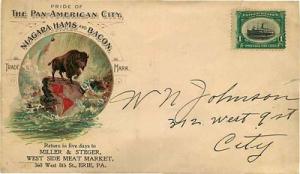 PRIDE OF
THE PAN-AMERICAN CITY.
NIAGARA HAMS AND BACON.
TRADE MARK.
Return in five days to
MILLER & STEGER,
WEST SIDE MEAT MARKET,
360 West 8th St., ERIE, PA.
W N Johnson
312 West 9 St
City